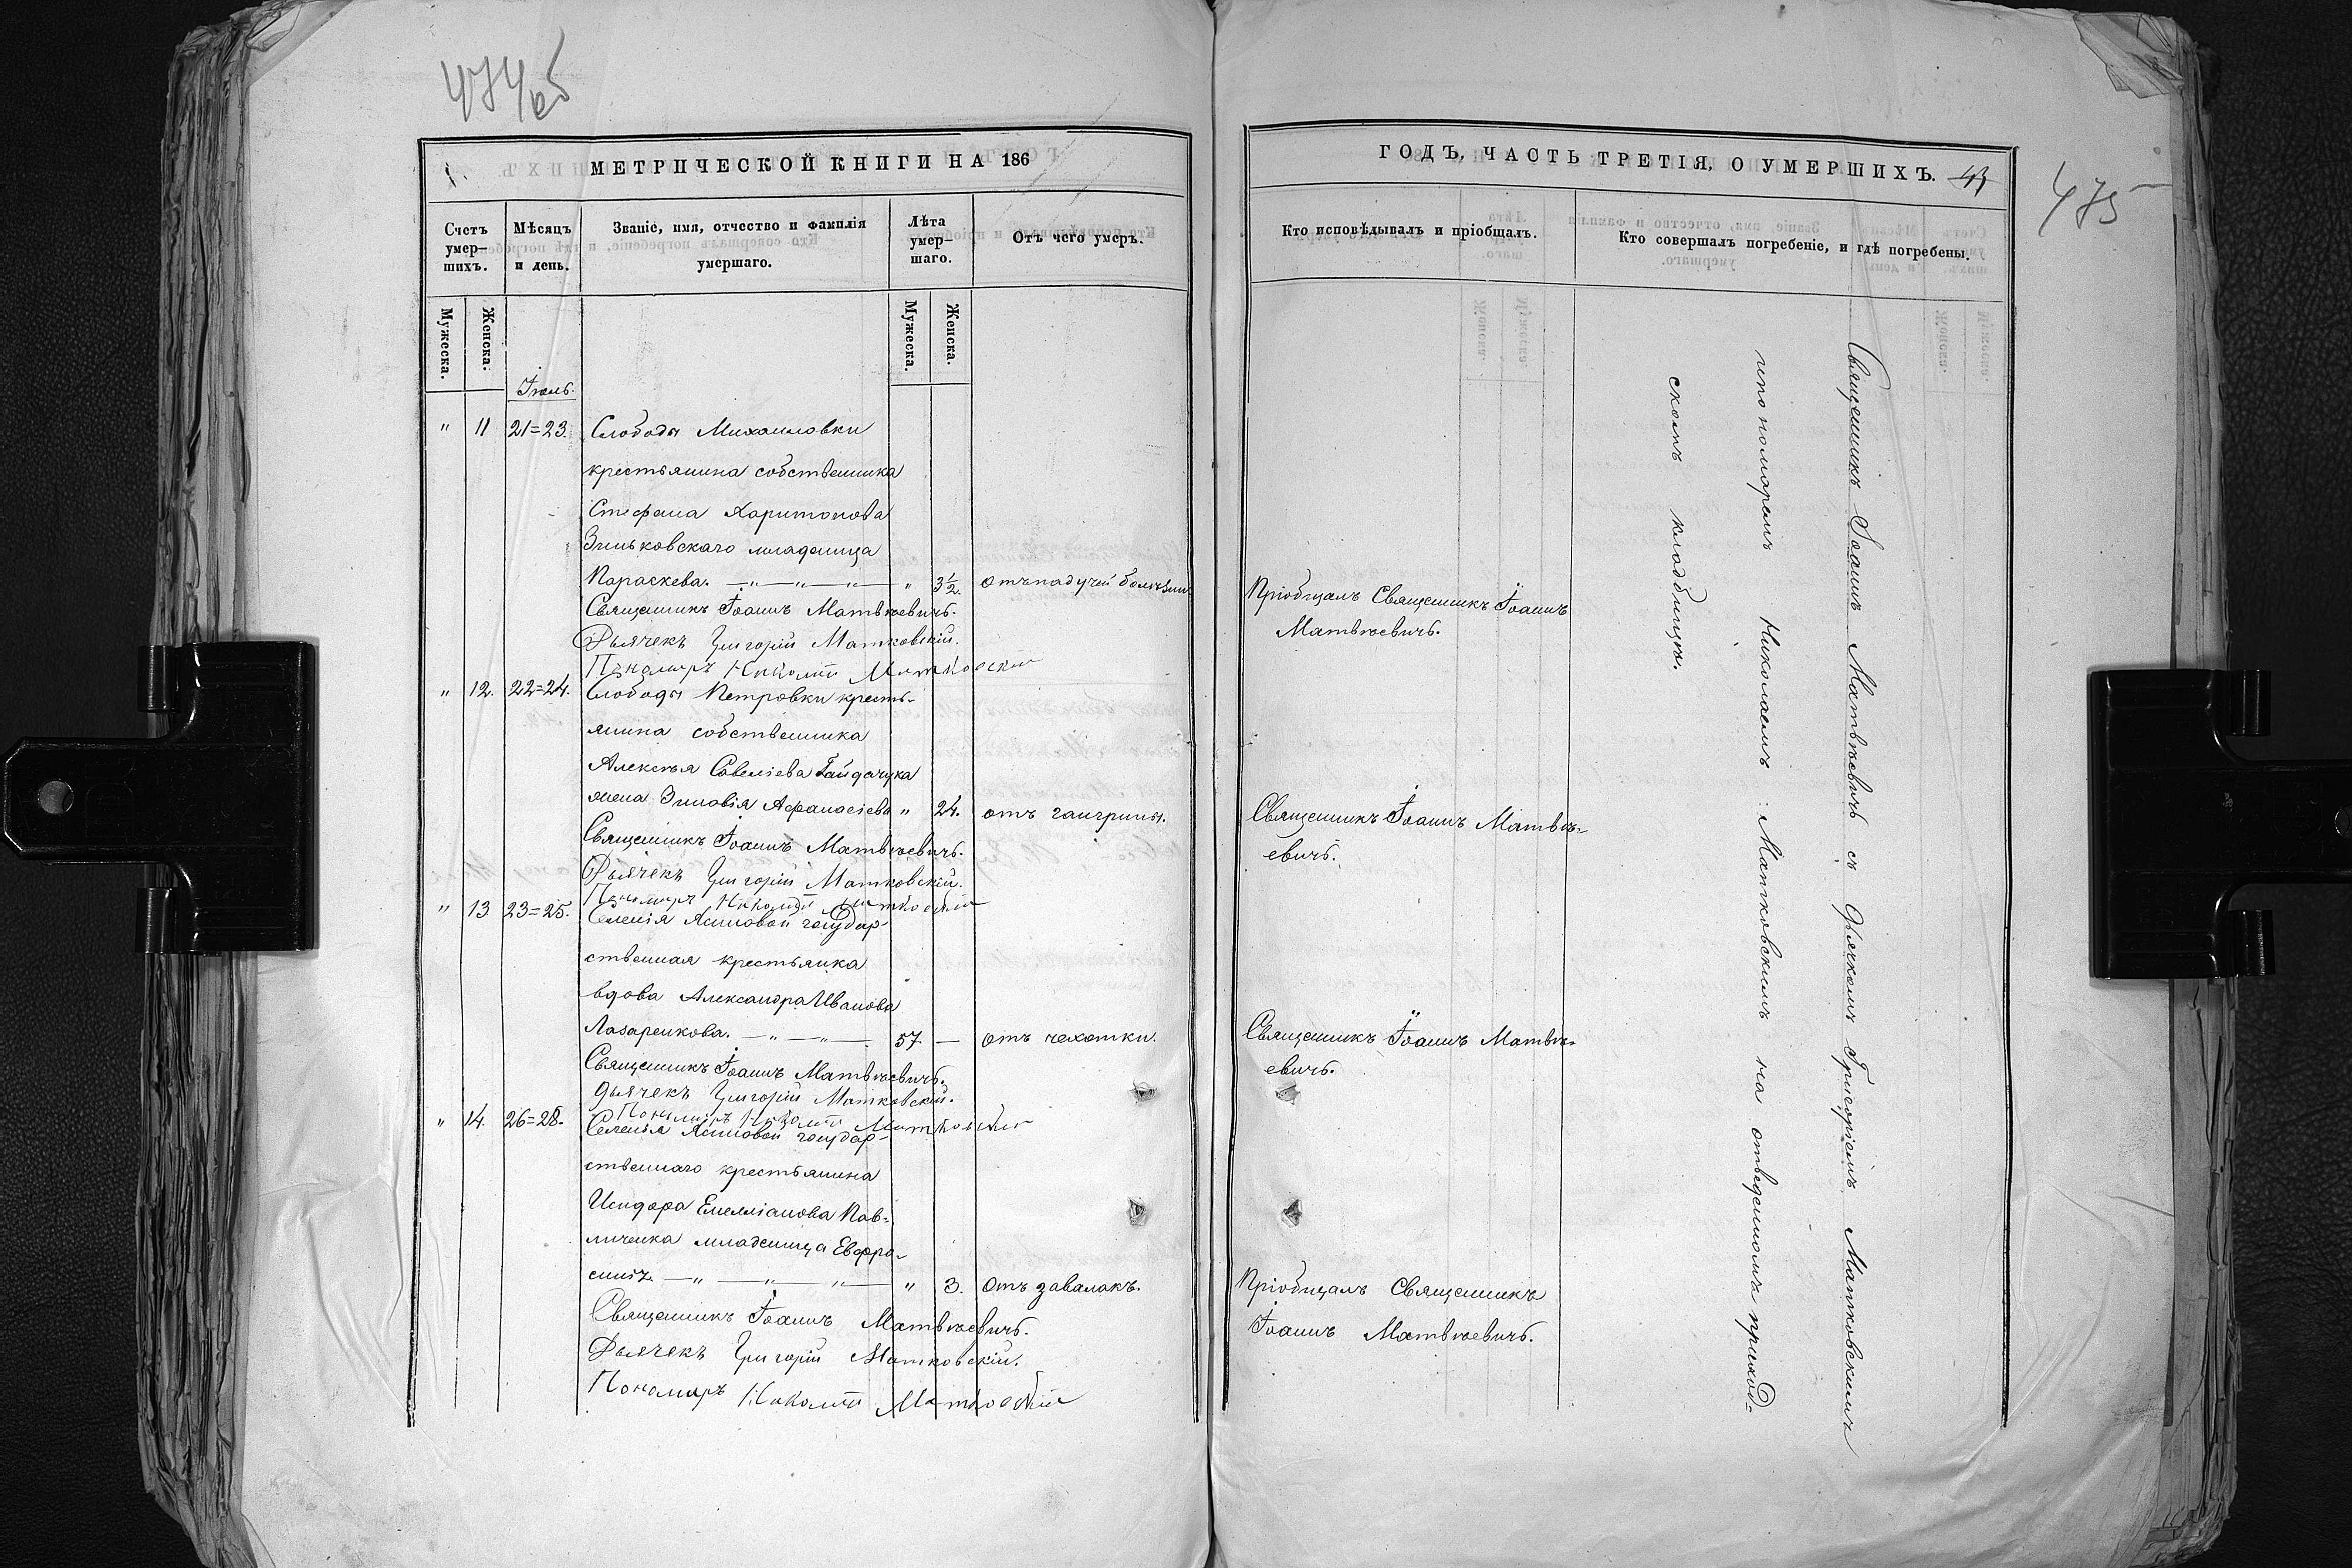 474об
МЕТРИЧЕСКОЙ КНИГИ НА 186
Счетъ умер-шихъ.
Мѣсяцъ и день.
Званіе, имя, отчество и фамилія умершаго.
Лѣта умер-шаго.
Отъ чего умеръ.
Мужеска.
Женска.
Мужеска.
Женска.
Іюль.
" 11 21=23. Слободы Михаиловки
крестьянина собственника
Стефана Харитонова
Зиньковскаго младеница
Параскева. —"—"—"— " 3½. отъ падучей болѣзни
Священникъ Іоаннъ Матвѣевичъ.
Дьячекъ Григорій Матковскій.
Пономарь Николай Матковскій
" 12. 22=24. Слободы Петровки кресть-
янина собственника
Алексѣя Савеліева Гайдачука
жена Зиновія Афанасіева " 24. отъ гангрины.
Священникъ Іоаннъ Матвѣевичъ.
Дьячекъ Григорій Матковскій.
Пономарь Николай Матковскій
" 13 23=25. Селенія Ясиновой государ-
ственная крестьянка
вдова Александра Иванова
Лазаренкова. —"—"— 57 — отъ чехотки.
Священникъ Іоаннъ Матвѣевичъ.
Дьячекъ Григорій Матковскій.
Пономарь Николай Матковскій
" 14. 26=28. Селенія Ясиновой государ-
ственнаго крестьянина
Исидора Емелліанова Пав-
личенка младеница Евфро-
синіz. —"—"—"— " 3. Отъ завалакъ.
Священникъ Іоаннъ Матвѣевичъ.
Дьячекъ Григорій Матковскій.
Пономарь Николай Матковскій
ГОДЪ, ЧАСТЬ ТРЕТІЯ, О УМЕРШИХЪ.
475
Кто исповѣдывалъ и пріобщалъ.
Кто совершалъ погребеніе, и гдѣ погребены.
Пріобщалъ Священникъ Іоаннъ
Матвѣевичъ.
Священникъ Іоаннъ Матвѣ-
евичъ.
Священникъ Іоаннъ Матвѣ-
евичъ.
Пріобщалъ Священникъ
Іоаннъ Матвѣевичъ.
Священникъ Іоаннъ Матвѣевичъ съ дьячкомъ Григоріемъ Матковскимъ
и пономоремъ Николаемъ Матковскимъ на отведенномъ приход-
скомъ кладбищѣ.